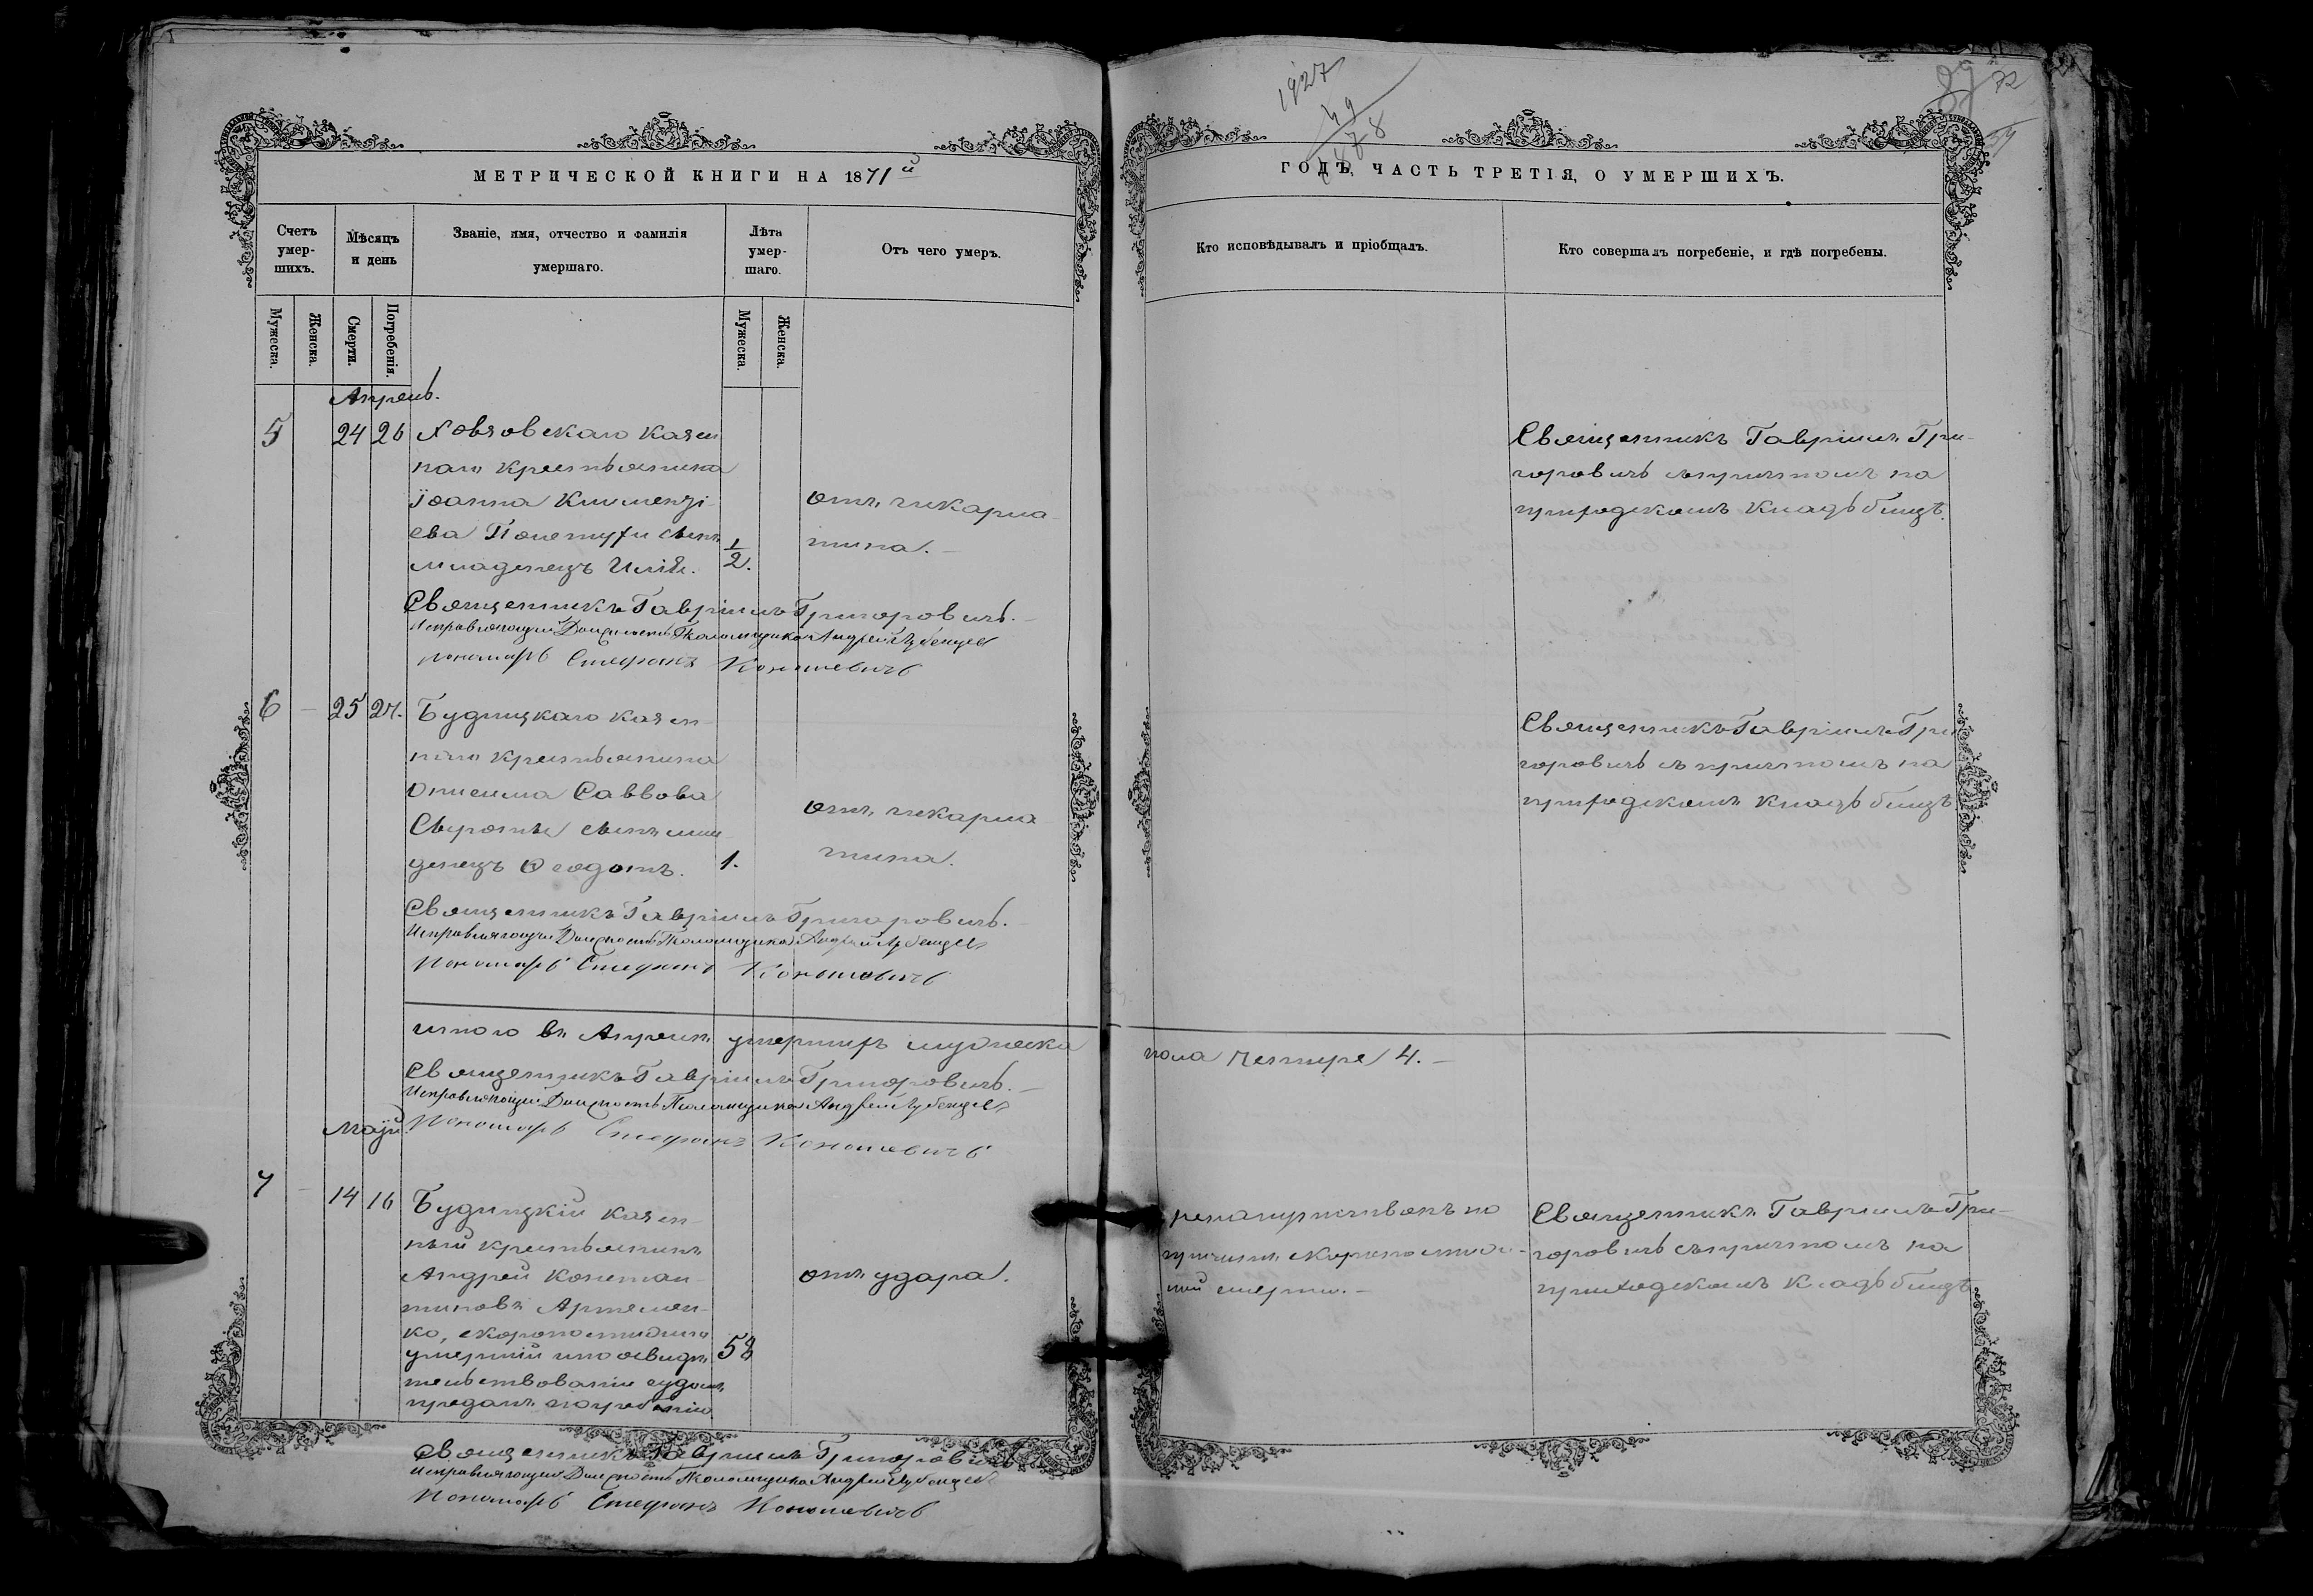 1927
49
1878
89
72
МЕТРИЧЕСКОЙ КНИГИ НА 1871й
ГОДЪ, ЧАСТЬ ТРЕТІЯ, О УМЕРШИХЪ.
Счетъ умер-шихъ.
Мѣсяцъ и день
Званіе, имя, отчество и фамилія умершаго.
Лѣта умер-шаго.
Отъ чего умеръ.
Кто исповѣдывалъ и пріобщалъ.
Кто совершалъ погребеніе, и гдѣ погребены.
Мужеска.
Женска.
Смерти.
Погребенія.
Мужеска.
Женска.
Апрель.
5 24 26 казен
наго крестьянина
Іоанна Клименті-
ева сынъ
младенецъ Илія. 1/2.
отъ чекарла-
тина.
Священникъ Гавріилъ Гри-
горовичъ съ причтомъ на
приходскомъ кладъбищѣ.
Священникъ Гавріилъ Григоровичъ.
Исправляющій Должность Псаломщика Андрей
Пономарь Стефанъ Кононевичъ
6 - 25 27. Будищкаго казен-
наго крестьянина
Онисима Саввова
Сыроты сынъ мла-
денецъ Ѳеодотъ. 1.
отъ чекарла-
тина.
Священникъ Гавріилъ Гри
горовичъ съ причтомъ на
приходскомъ кладъбищѣ
Священникъ Гавріилъ Григоровичъ.
Исправляющій Должность Псаломщика Андрей
Пономарь Стефанъ Кононевичъ
итого въ Апрелѣ умершихъ мужеска
пола четыре 4.-
Священникъ Гавріилъ Григоровичъ.-
Исправляющій Должность Псаломщика Андрей
Пономарь Стефанъ Кононевичъ
Маій.
7 - 14 16 Будищкій казен-
ный крестьянинъ
Андрей Констан-
тиновъ Артемен-
ко, скоропостижно
умершій и по освидѣ
тельствованіи судомъ
преданъ погребенію
58
отъ удара.
ненапутствованъ по
причинѣ скоропостиж-
ной смерти.-
Священникъ Гавріилъ Гри-
горовичъ съ причтомъ на
приходскомъ кладъбищѣ
Священникъ Гавріилъ Григоровичъ
Исправляющій Должность Псаломщика Андрей
Пономарь Стефанъ Кононевичъ